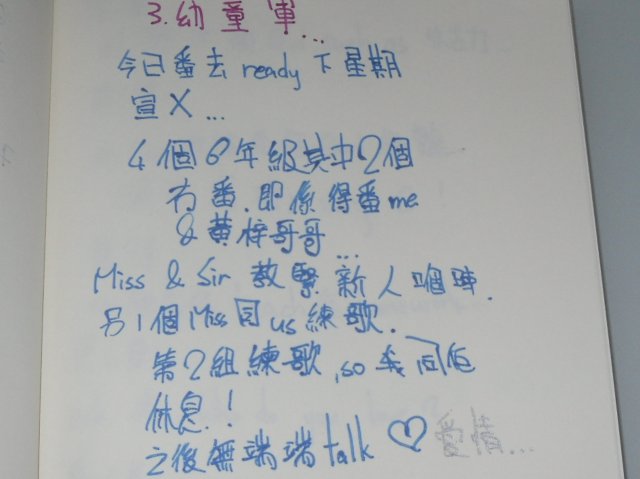 3.幼童軍...
今日番去 ready 下星期
宣X...
4個6年級其中2個
冇番,即係得番me
&黃梓哥哥...
Miss & Sir 教緊新人嗰陣.
另1個Miss同us練歌.
第2組練歌,so我同佢
休息!
之後無端端talk ♡ 愛情...